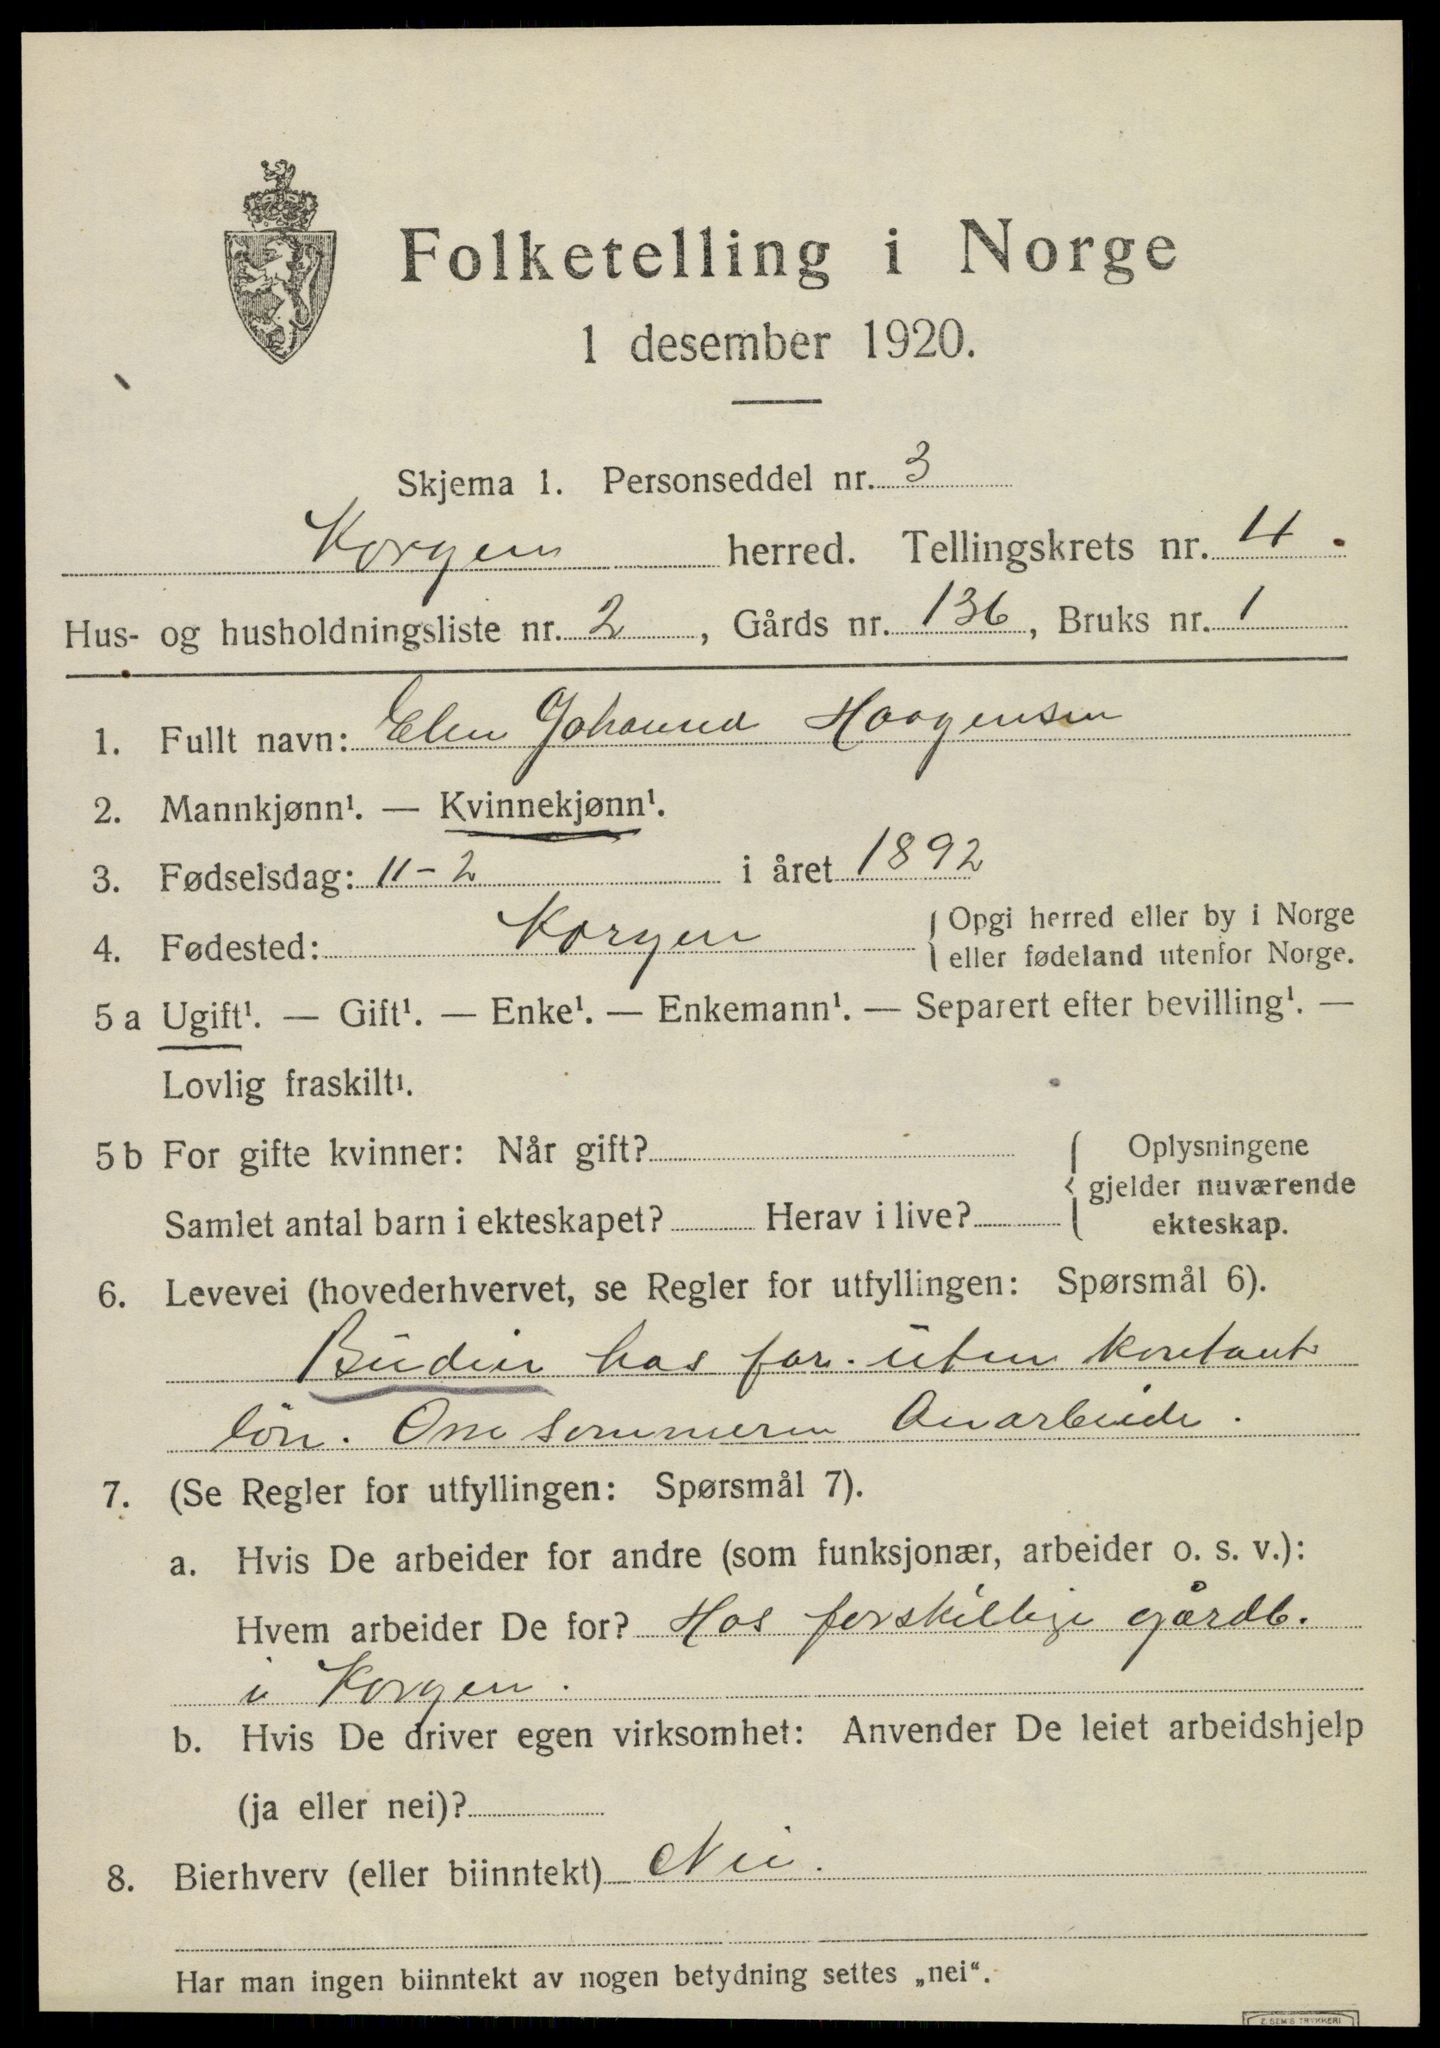 Folketelling i Norge
1 desember 1920.
Skjema 1. Personseddel nr. 3
Korgen herred. Tellingskrets nr. 4.
Hus- og husholdningsliste nr. 2, Gårds nr. 136, Bruks nr. 1
1. Fullt navn: Elen Johanna Haagensen
2. Mannkjønn¹. — Kvinnekjønn¹.
3. Fødselsdag: 11-2 i året 1892
4. Fødested: Korgen { Opgi herred eller by i Norge
eller fødeland utenfor Norge.
5 a Ugift¹. — Gift¹. — Enke¹. — Enkemann¹. — Separert efter bevilling¹. —
Lovlig fraskilt¹.
5 b For gifte kvinner: Når gift? { Oplysningene
gjelder nuværende
Samlet antal barn i ekteskapet? Herav i live? ekteskap.
6. Levevei (hovederhvervet, se Regler for utfyllingen: Spørsmål 6).
Budeie hos far. uten kontant
løn. Om sommeren
7. (Se Regler for utfyllingen: Spørsmål 7).
a. Hvis De arbeider for andre (som funksjonær, arbeider o. s. v.):
Hvem arbeider De for? Hos forskillige gårdb.
i Korgen.
b. Hvis De driver egen virksomhet: Anvender De leiet arbeidshjelp
(ja eller nei)?
8. Bierhverv (eller biinntekt) Nei.
Har man ingen biinntekt av nogen betydning settes „nei“.
E. SEM'S TRYKKERI